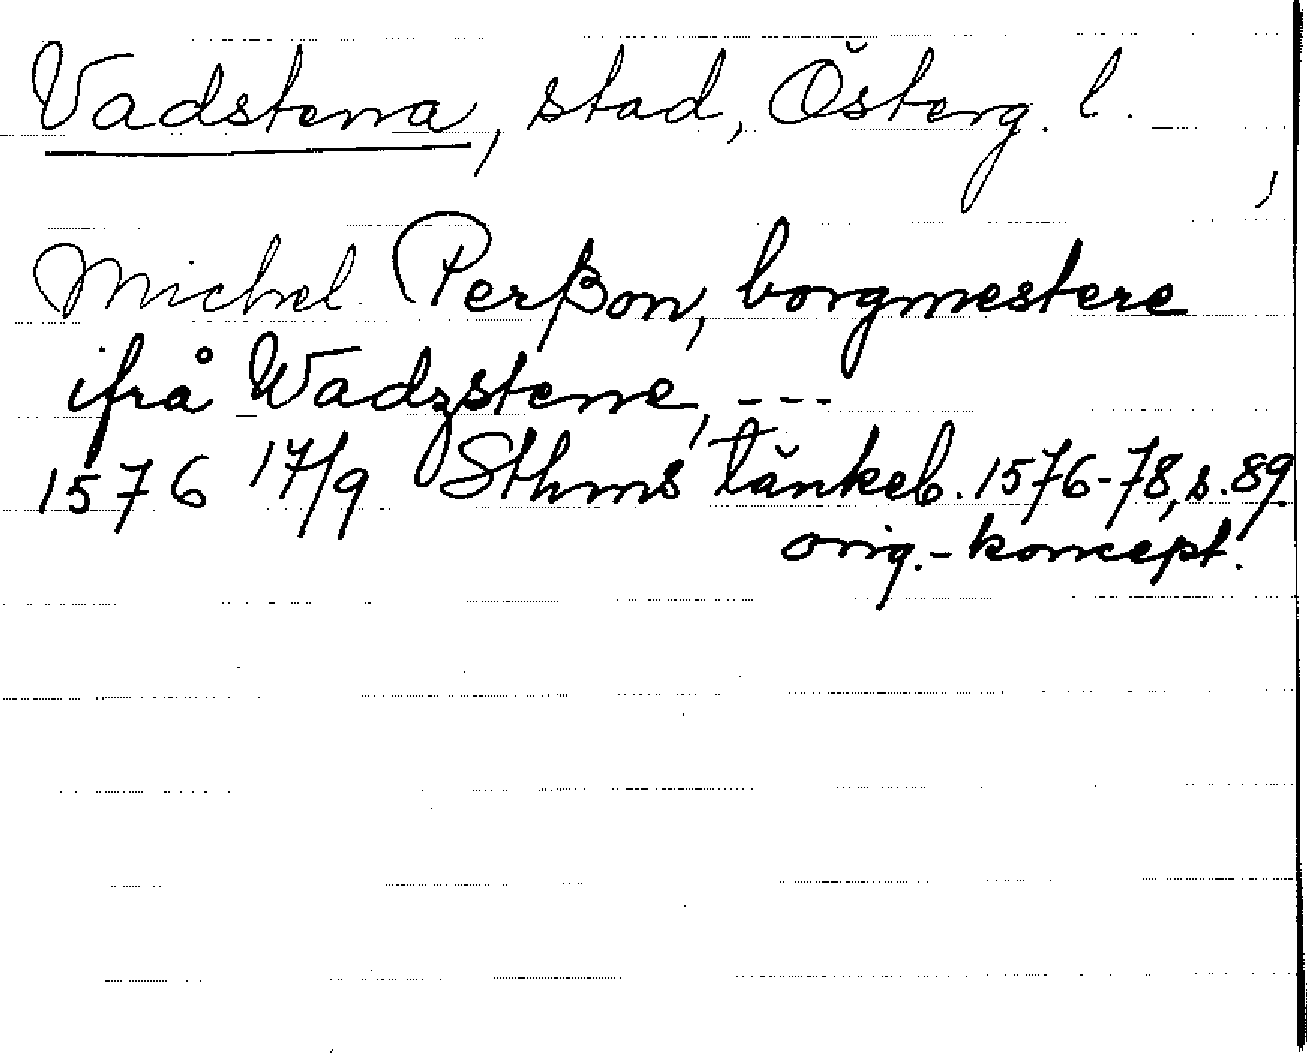 Vadstena, stad, Österg. l.
Michel Perßon, borgmestere
ifrå Wadzstene, ---
1576 17/9 Sthms tänkeb. 1576-78, s. 89
orig.-koncept.